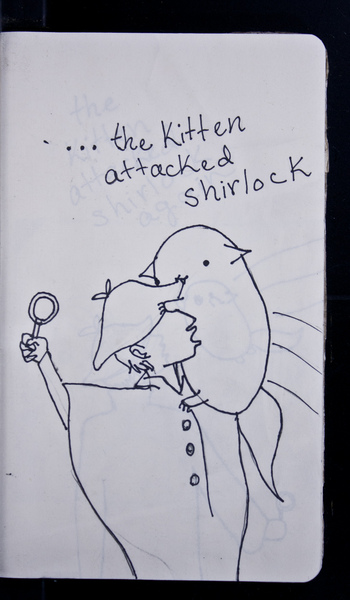 ... the Kitten
attacked
shirlock